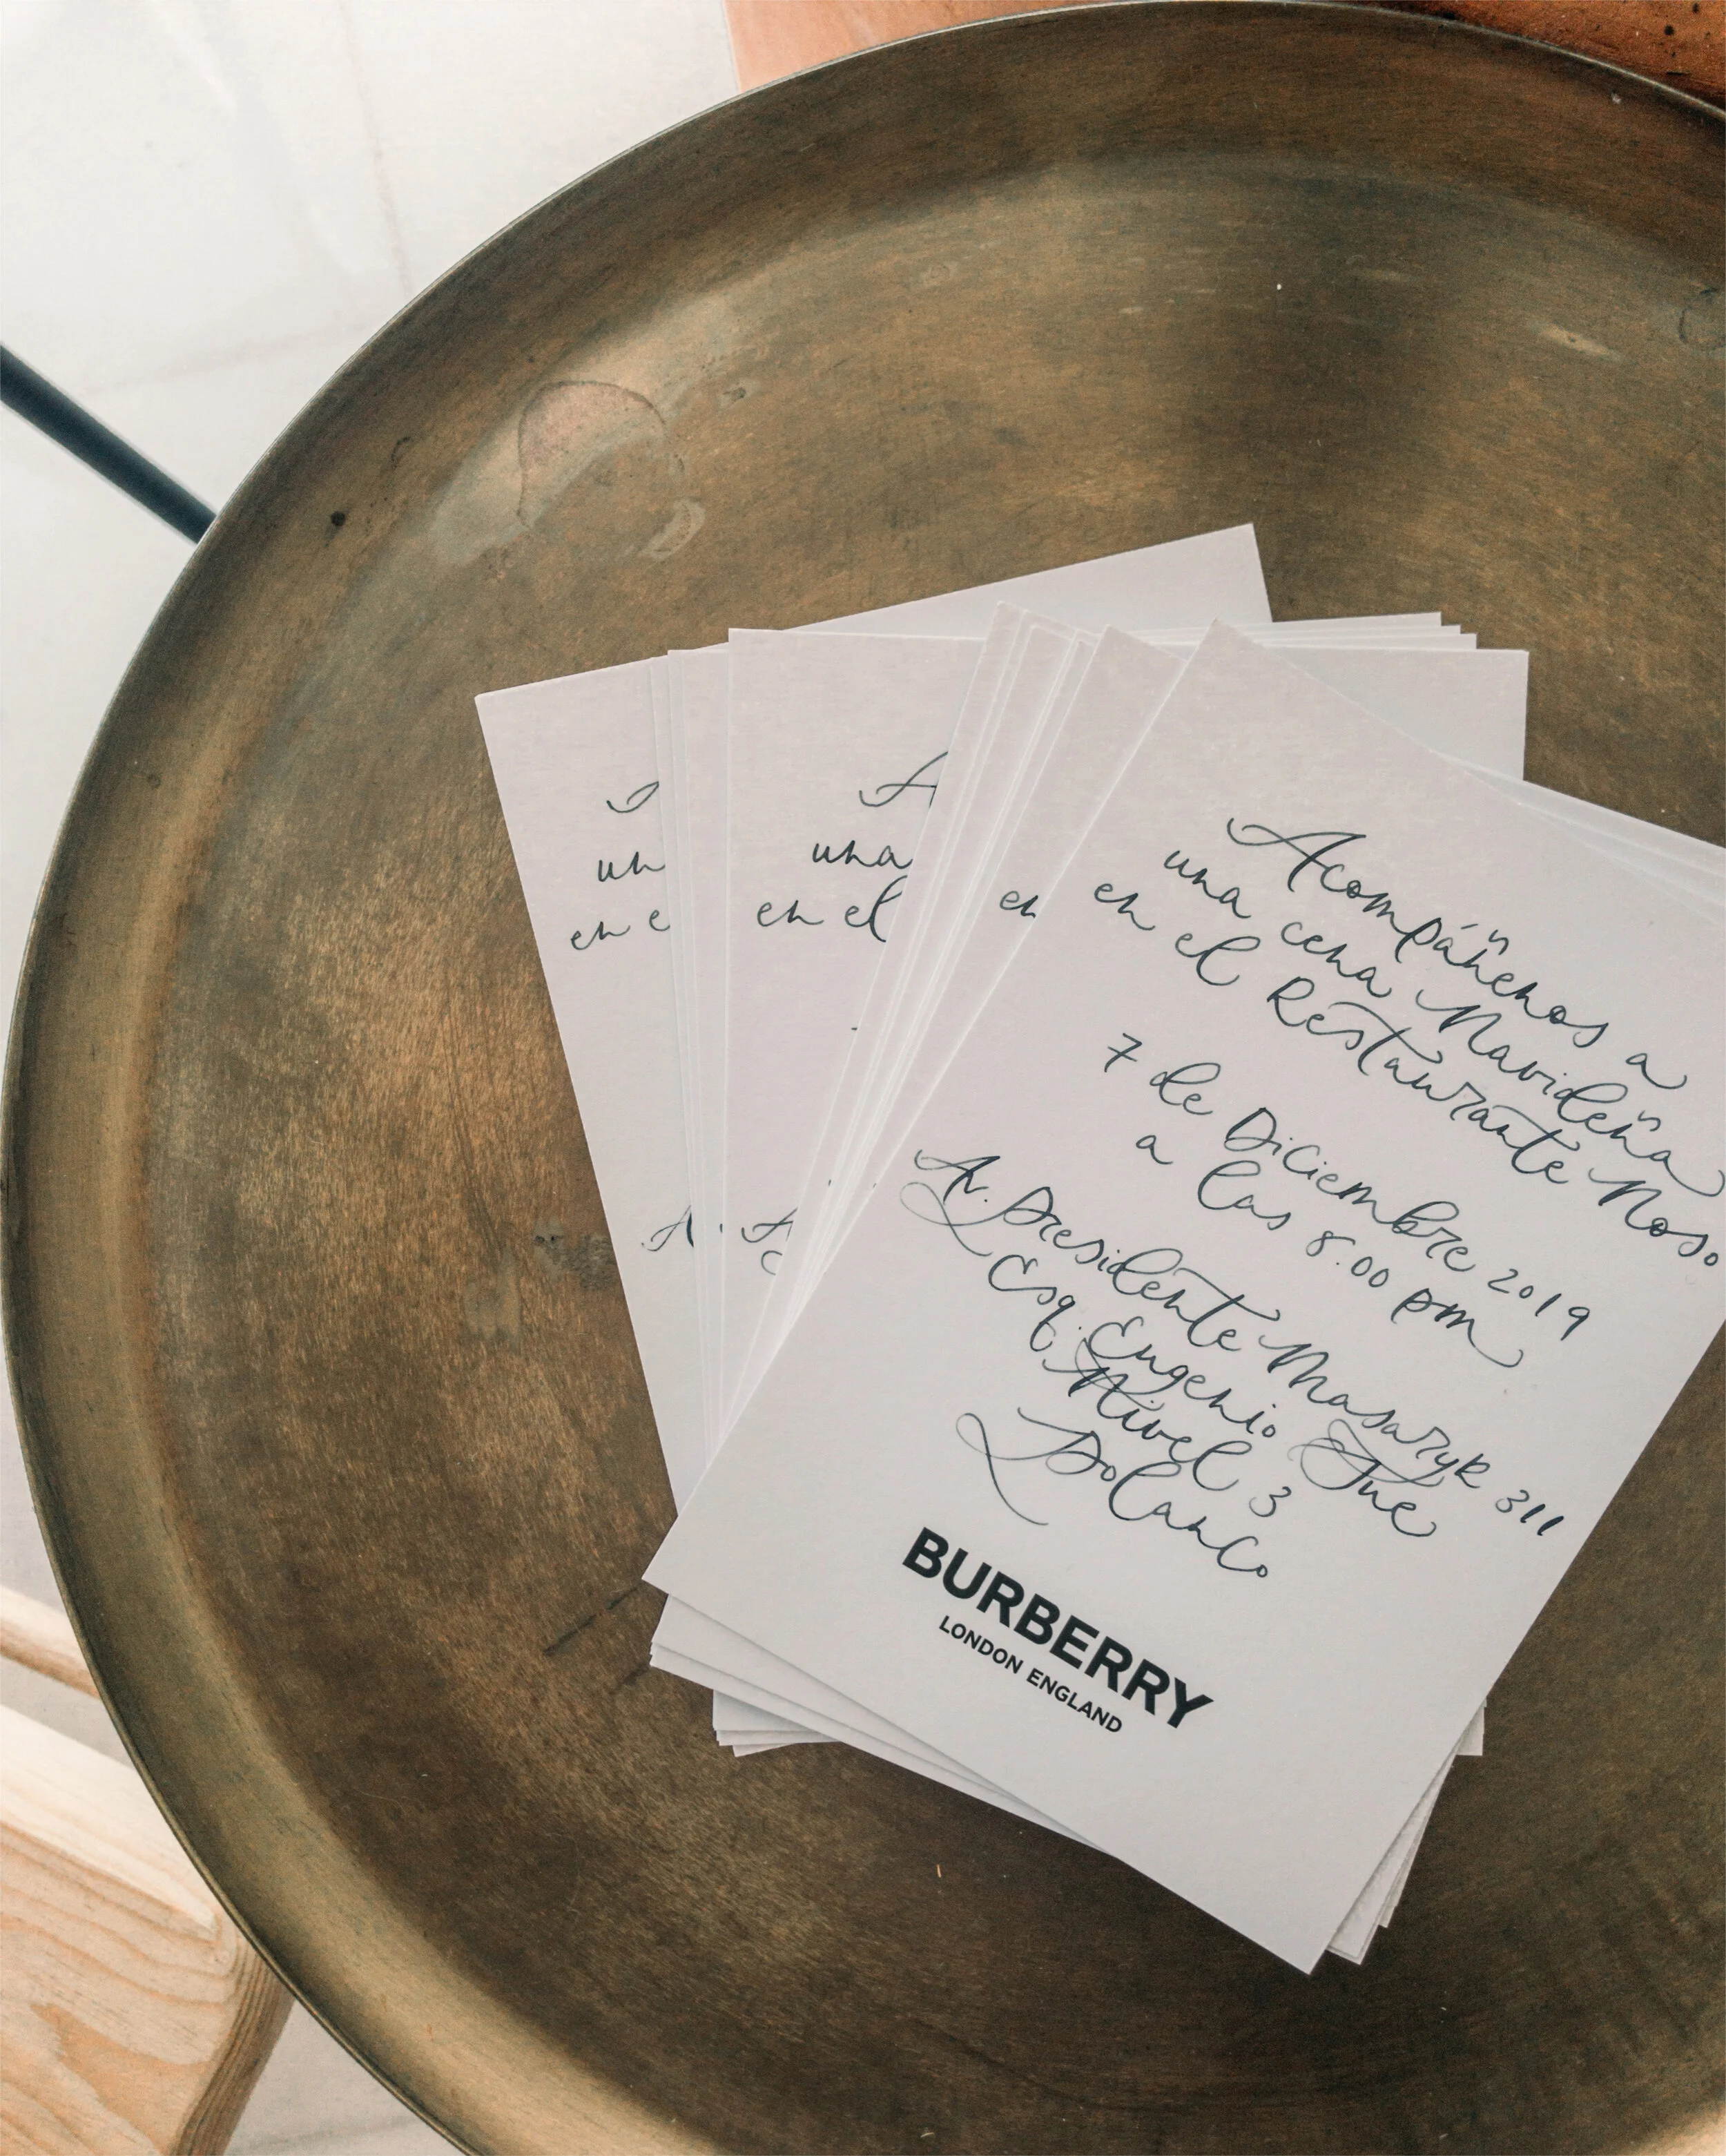 A
un
en e
A
A
una
en el
A
en
Acompáñenos a
una cena Navideña
en el Restaurante Noso
7 de Diciembre 2019
a las 8:00 pm
Av. Presidente Masaryk 311
Esq. Eugenio Sue
Nivel 3
Polanco
BURBERRY
LONDON ENGLAND